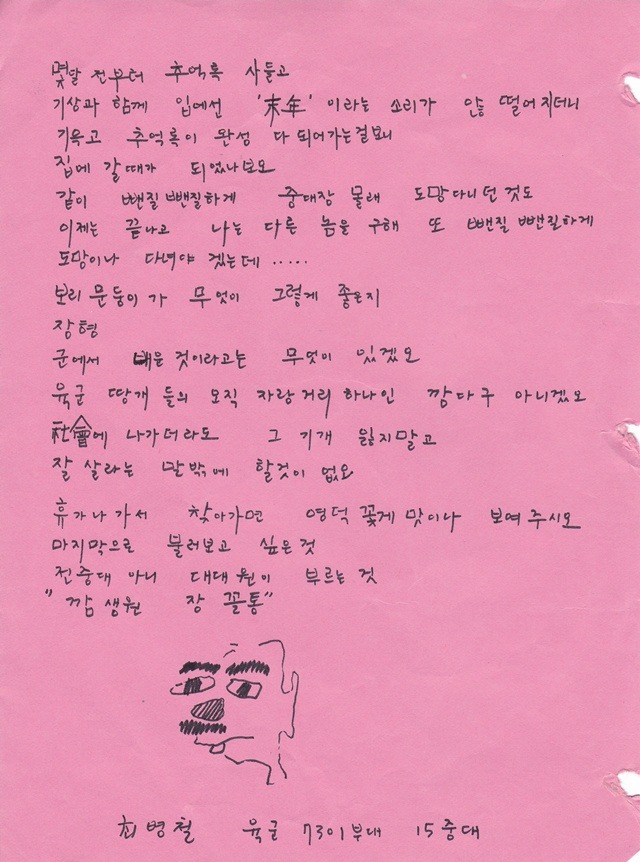 몇달 전부터 추억록 사들고
기상과 함께 입에선 '末年' 이라는 소리가 않 떨어지더니
기윽고 추억록이 완성 다 되어가는걸보니
집에 갈때가 되었나보오
같이 뺀질뺀질하게 중대장 몰래 도망다니던 것도
이제는 끝나고 나는 다른 놈을 구해 또 뺀질 뺀질하게
도망이나 다녀야 겠는데 .....
보리 문둥이가 무엇이 그렇게 좋은지
장형
군에서 배운 것이라고는 무엇이 있겠오
육군 땅개 들의 오직 자랑거리 하나인 깜다구 아니겠오
社會에 나가더라도 그 기개 잃지말고
잘 살라는 말밖에 할것이 없오
휴가나 가서 찾아가면 영덕 꽃게 맛이나 보여 주시오
마지막으로 불러보고 싶은 것
전중대 아니 대대원이 부르는 것
"깜생원 장 꼴통"
최병철 육군 7301부대 15중대